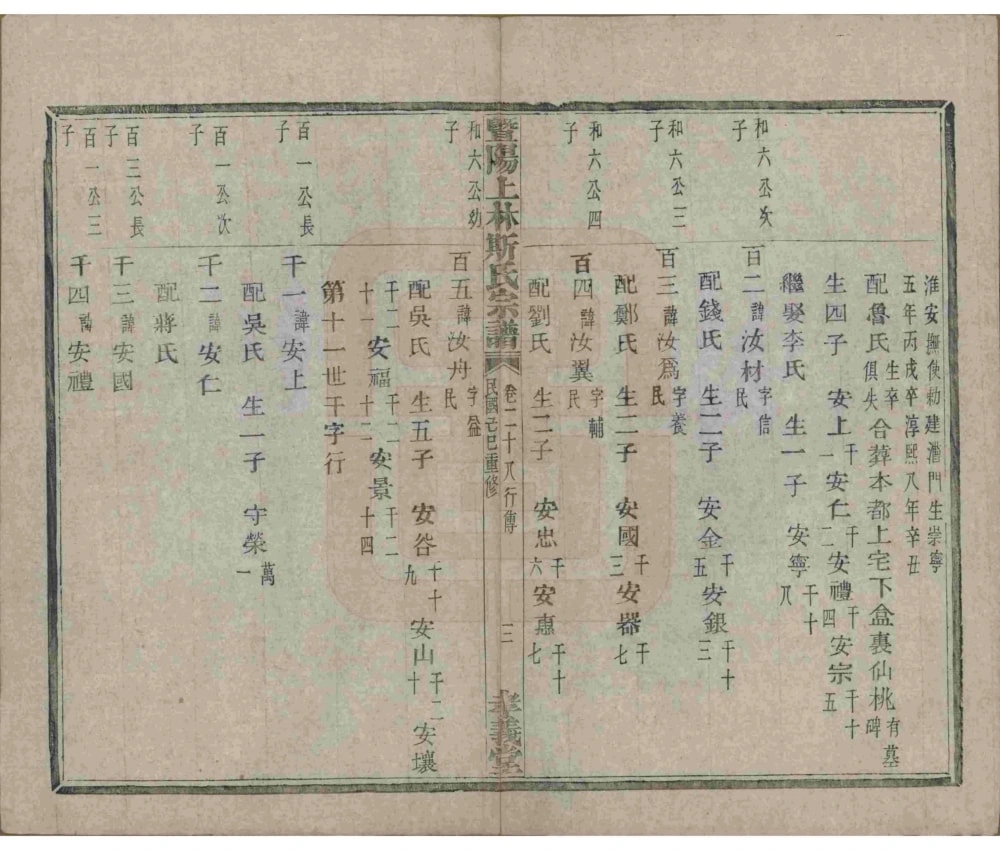 淮安撫使勅建濟門生崇寧
五年丙戌卒淳熙八年辛丑
配魯氏生卒俱失合葬本都上宅下盒裏仙桃有墓碑
生四子 安上千一安仁千二安禮千四安宗千十五
繼娶李氏 生一子 安寧千十八
和六公次子
百二諱汝材字信民
配錢氏 生二子 安金千五安銀千十三
和六公三子
百三諱汝爲字養民
配鄭氏 生二子 安國千三安器千七
和六公四子
百四諱汝翼字輔民
配劉氏 生二子 安忠千六安惠千十七
暨陽上林斯氏宗譜 卷二十八行傳 民國己巳重修 三 孝義堂
和六公幼子
百五諱汝舟字益民
配吳氏 生五子 安谷千十九 安山千二十 安壤
千二十一 安福千二十二 安景千二十四
第十一世千字行
百一公長子
千一諱安上
配吳氏 生一子 守榮萬一
百一公次子
千二諱安仁
配蔣氏
百三公長子
千三諱安國
百一公三子
千四諱安禮